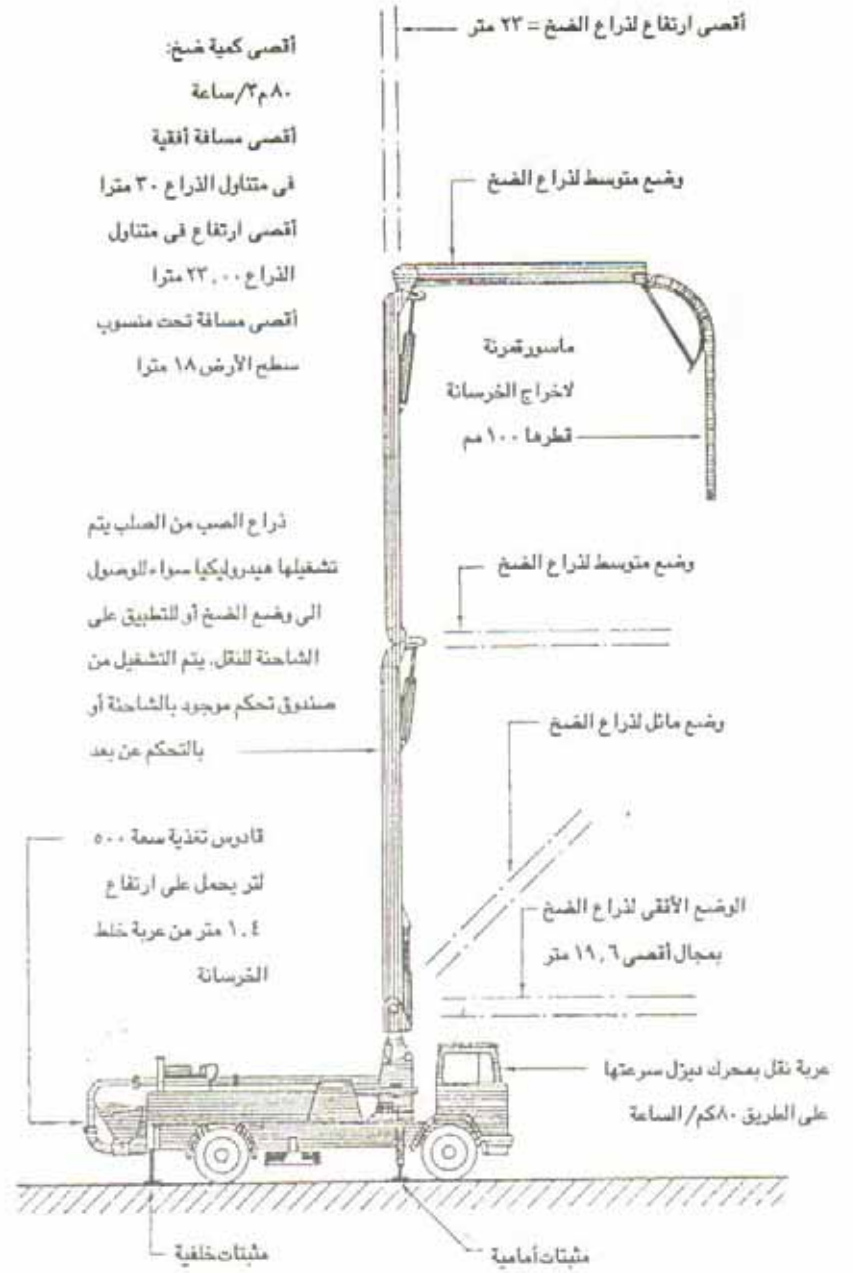 أقصى ارتفاع لذراع الضخ = ٢٣ متر
أقصى كمية ضخ:
٨٠ م٣/ساعة
أقصى مسافة أفقية
فى متناول الذراع ٣٠ مترا
أقصى ارتفاع فى متناول
الذراع ٢٣,٠٠ مترا
أقصى مسافة تحت منسوب
سطح الأرض ١٨ مترا
وضع متوسط لذراع الضخ
ماسورة مرنة
لاخراج الخرسانة
قطرها ١٠٠ مم
ذراع الصب من الصلب يتم
تشغيلها هيدروليكيا سواء للوصول
الى وضع الضخ أو للتطبيق على
الشاحنة للنقل. يتم التشغيل من
صندوق تحكم موجود بالشاحنة أو
بالتحكم عن بعد
وضع متوسط لذراع الضخ
وضع مائل لذراع الضخ
قادوس تغذية سعة ٥٠٠
لتر يحمل على ارتفاع
١,٤ متر من عربة خلط
الخرسانة
الوضع الأفقى لذراع الضخ
بمجال أقصى ١٩,٦ متر
عربة نقل بمحرك ديزل سرعتها
على الطريق ٨٠كم/الساعة
مثبتات أمامية
مثبتات خلفية